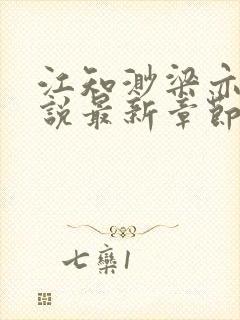 江知渺梁亦
說最新章節
七欒1